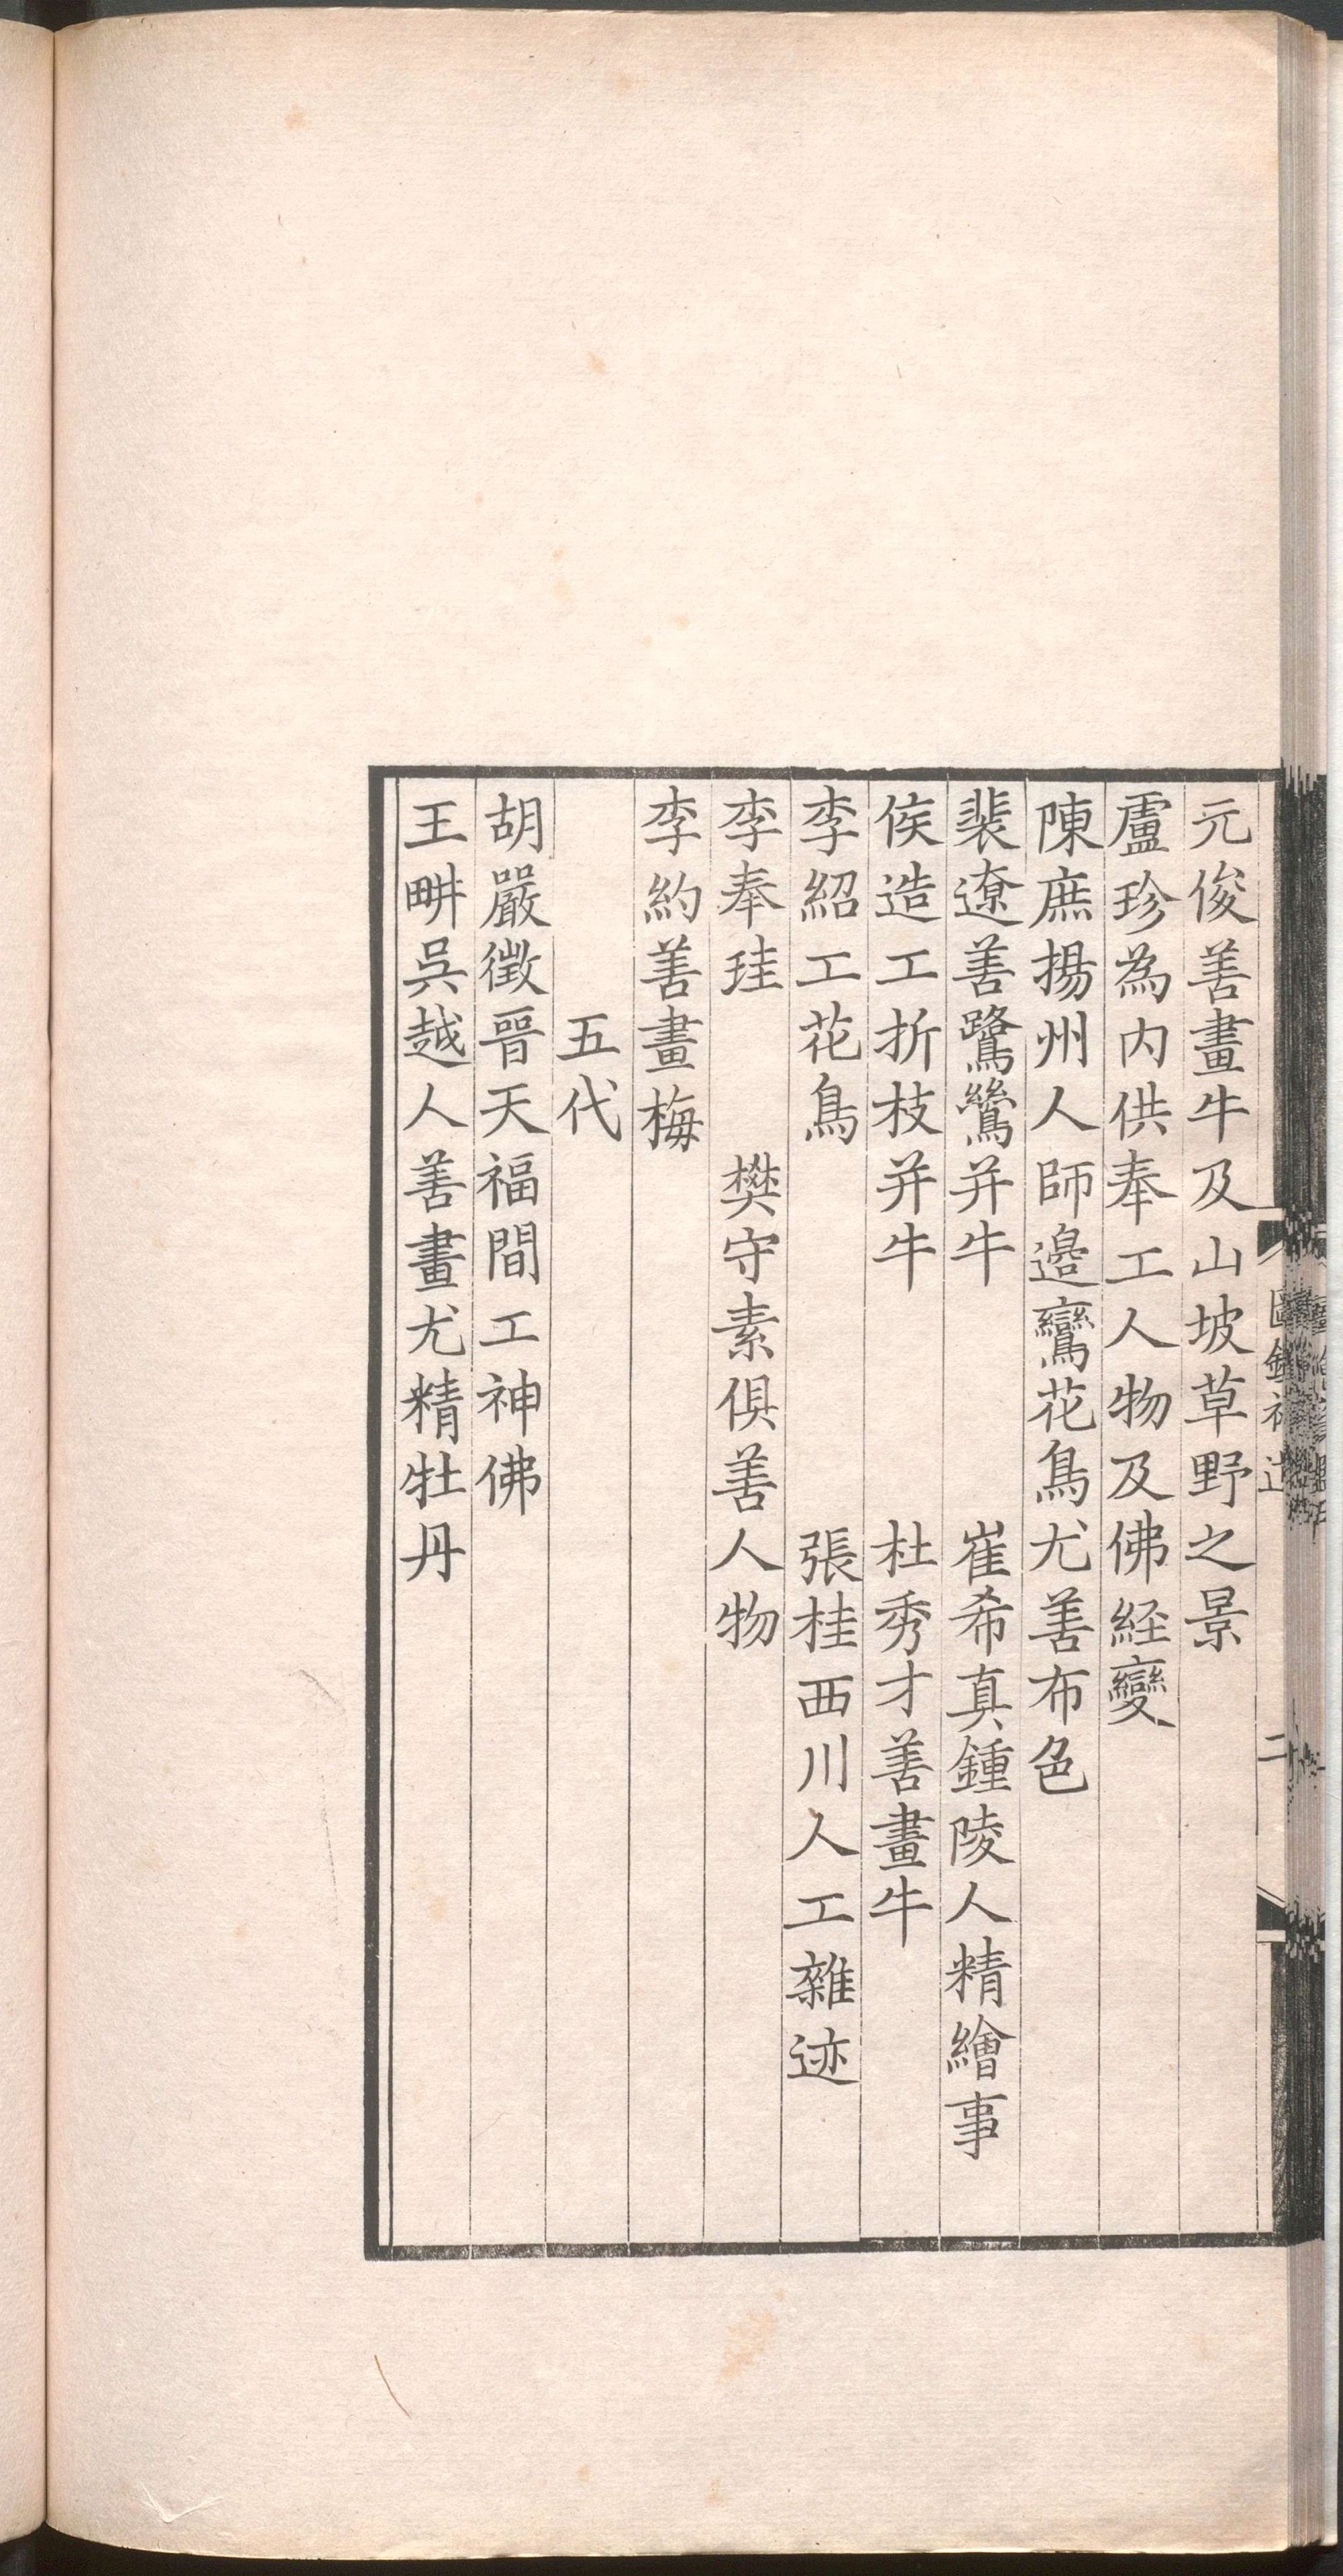 元俊善畫牛及山坡草野之景
盧珍為內供奉工人物及佛経變
陳庶揚州人師邉鸞花鳥尤善布色
裴遼善鷺鷥并牛　崔希真鍾陵人精繪事
侯造工折枝并牛　杜秀才善畫牛
李紹工花鳥　張桂西川人工雜迹
李奉珪　樊守素俱善人物
李約善畫梅
五代
胡嚴徴晉天福間工神佛
王畊吳越人善畫尤精牡丹
二